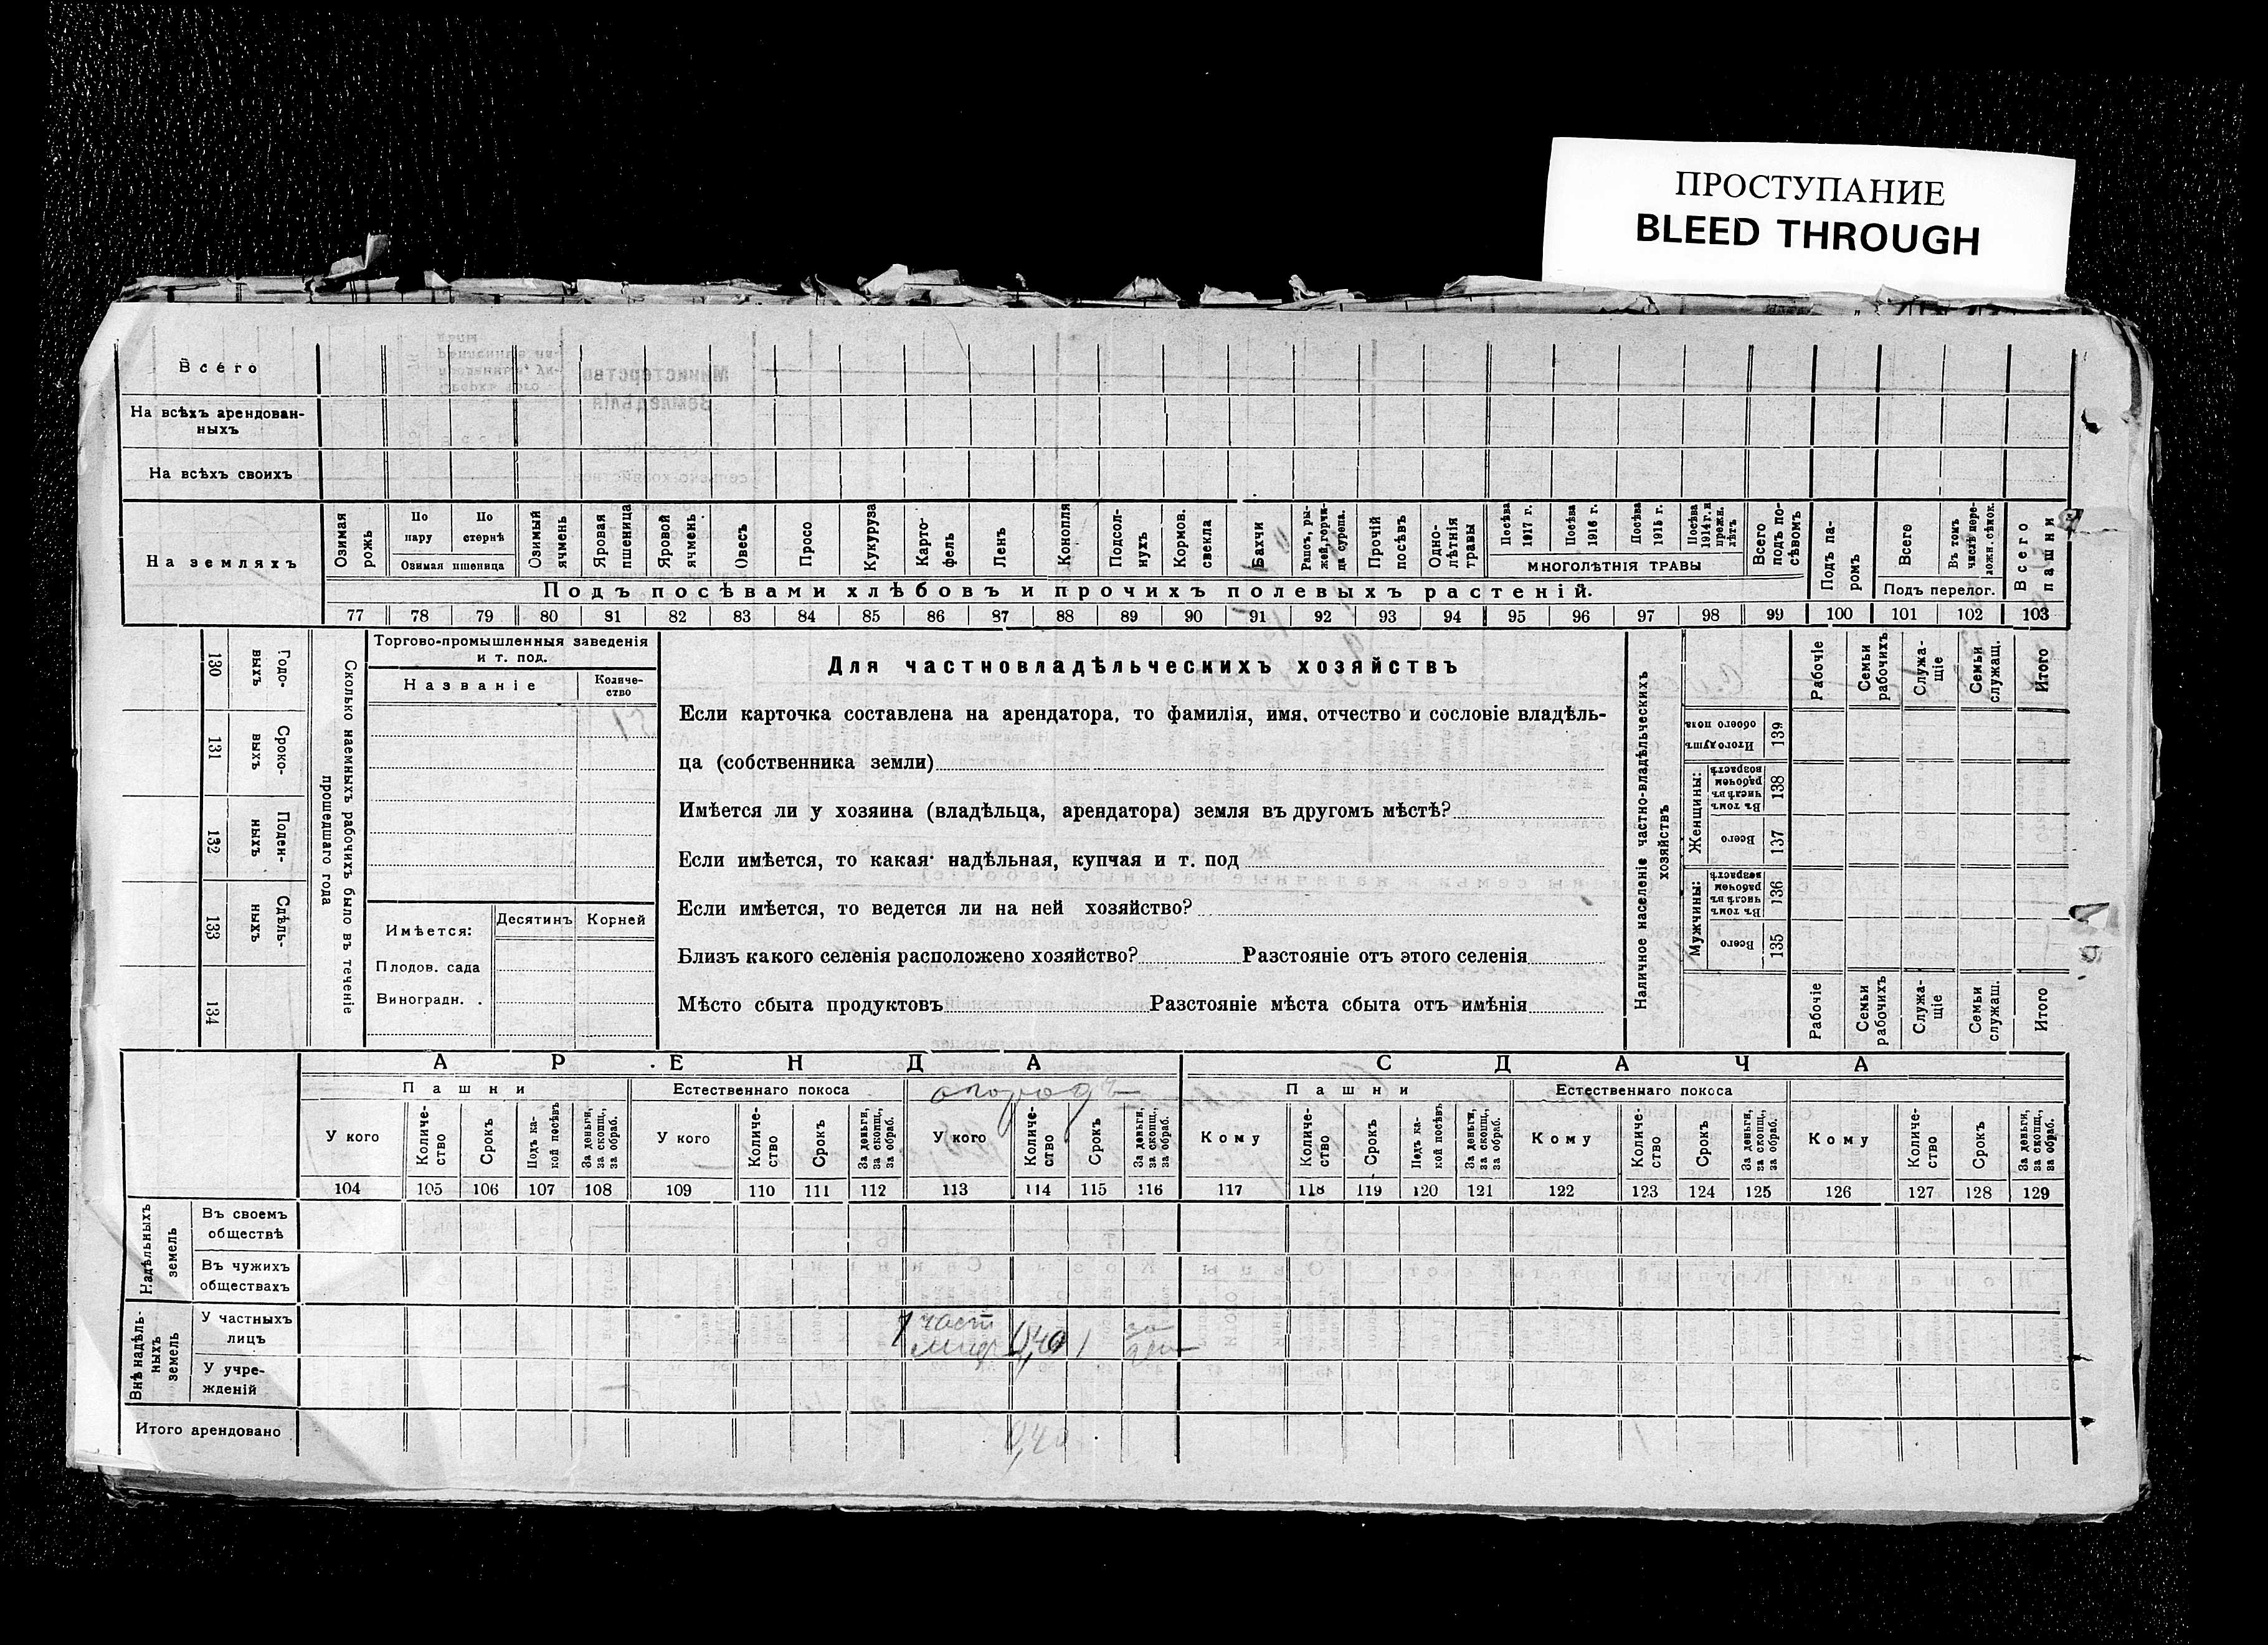 ПРОСТУПАНИЕ
BLEED THROUGH
Всего
На всѣхъ арендован-
ныхъ
На всѣхъ своихъ
На земляхъ
Озимая рожь
По пару
По стернѣ
Озимая пшеница
Озимый ячмень
Яровая пшеница
Яровой ячмень
Овесъ
Просо
Кукуруза
Карто-
фель
Ленъ
Конопля
Подсол-
нухъ
Кормов. свекла
Бахчи
Рапсъ, ры-
жей, горчи-
ца сурепа.
Прочій посѣвъ
Одно-
лѣтнія травы
Посѣва 1917 г.
Посѣва 1916 г.
Посѣва 1915 г.
Посѣва 1914 г. и прежн. лѣтъ
МНОГОЛѢТНІЯ ТРАВЫ
Всего подъ по-
сѣвомъ
Подъ па-
ромъ
Всего
Въ томъ числѣ пере-
ложн. сѣнок.
Подъ перелог.
Всего пашни
Подъ посѣвами хлѣбовъ и прочихъ полевыхъ растеній.
77 78 79 80 81 82 83 84 85 86 87 88 89 90 91 92 93 94 95 96 97 98 99 100 101 102 103
130 Годо-
выхъ
131 Сроко-
выхъ
132 Поден-
ныхъ
133 Сдѣль-
ныхъ
134
Сколько наемныхъ рабочихъ было въ теченіе
прошедшаго года
Торгово-промышленныя заведенія
и т. под.
Названіе
Количе-
ство
Имѣется:
Десятинъ
Корней
Плодов. сада
Виноградн. .
Для частновладѣльческихъ хозяйствъ
Если карточка составлена на арендатора, то фамилія, имя, отчество и сословіе владѣль-
ца (собственника земли)
Имѣется ли у хозяина (владѣльца, арендатора) земля въ другомъ мѣстѣ?
Если имѣется, то какая· надѣльная, купчая и т. под
Если имѣется, то ведется ли на ней хозяйство?
Близъ какого селенія расположено хозяйство? Разстояніе отъ этого селенія
Мѣсто сбыта продуктовъ Разстояніе мѣста сбыта отъ имѣнія
Наличное населеніе частно-владѣльческихъ
хозяйствъ
Итого душъ обоего пола 139
Женщины:
Въ томъ числѣ въ рабочемъ возрастѣ 138
Всего 137
Мужчины:
Въ томъ числѣ въ рабочемъ возрастѣ 136
Всего 135
Рабочіе
Семьи рабочихъ
Служа-
щіе
Семьи служащ.
Итого
Рабочіе
Семьи рабочихъ
Служа-
щіе
Семьи служащ.
Итого
АРЕНДА
СДАЧА
Пашни
Естественнаго покоса
огородъ
Пашни
Естественнаго покоса
У кого
Количе-
ство
Срокъ
Подъ ка-
кой посѣвъ
За деньги, за скопщ., за обраб.
У кого
Количе-
ство
Срокъ
За деньги, за скопщ., за обраб.
У кого
Количе-
ство
Срокъ
За деньги, за скопщ., за обраб.
Кому
Количе-
ство
Срокъ
Подъ ка-
кой посѣвъ
За деньги, за скопщ., за обраб.
Кому
Количе-
ство
Срокъ
За деньги, за скопщ., за обраб.
Кому
Количе-
ство
Срокъ
За деньги, за скопщ., за обраб.
104 105 106 107 108 109 110 111 112 113 114 115 116 117 118 119 120 121 122 123 124 125 126 127 128 129
Надѣльныхъ
земель
Въ своемъ
обществѣ
Въ чужихъ
обществахъ
Внѣ надѣль-
ныхъ
земель
У частныхъ
лицъ
част
0,40 1
за
ден
У учре-
жденій
Итого арендовано
0,40